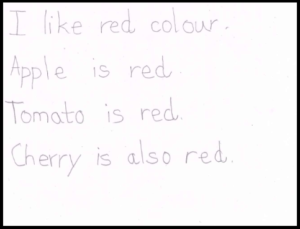 I like red colour.
Apple is red
Tomato is red.
Cherry is also red.